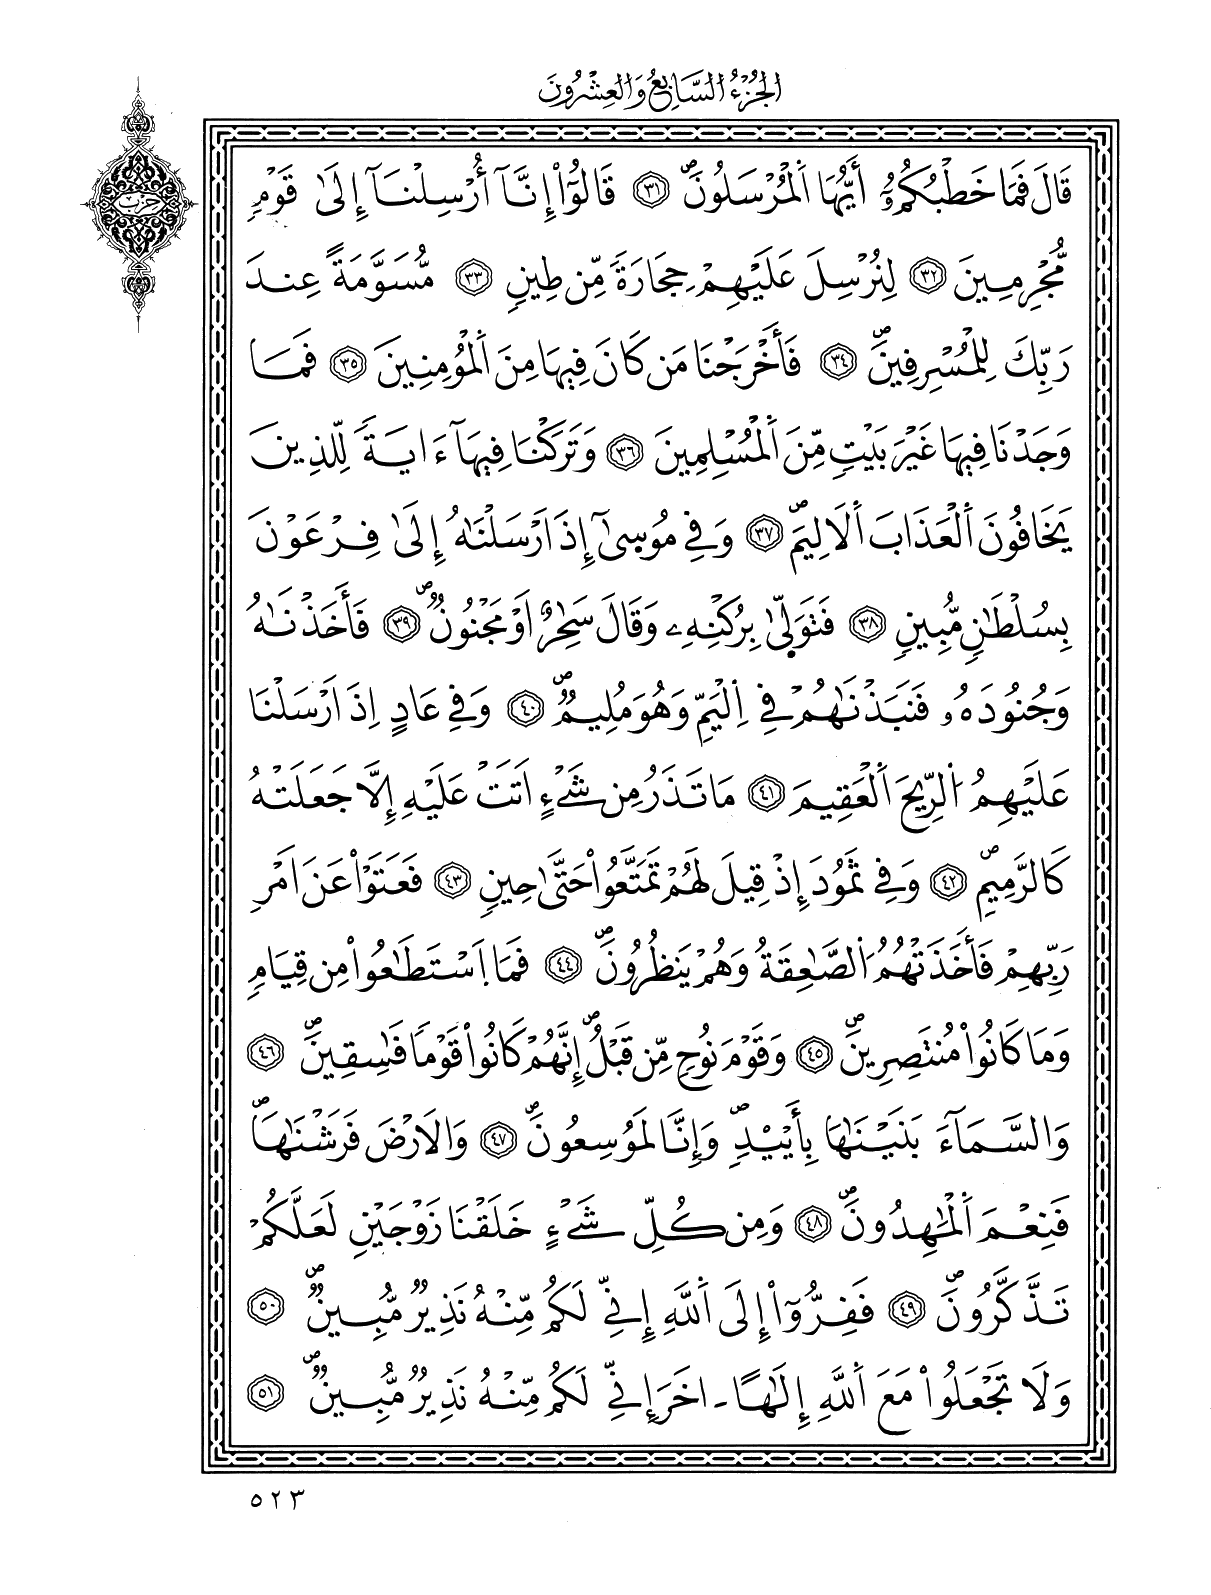 الجُزْءُ السَّابِعُ وَالعِشْرُونَ
حزب
قَالَ فَمَا خَطْبُكُمُۥٓ أَيُّهَا اَ۬لْمُرْسَلُونَۖ ٣١ قَالُوٓاْ إِنَّآ أُرْسِلْنَآ إِلَىٰ قَوْمٖ
مُّجْرِمِينَ ٣٢ لِنُرْسِلَ عَلَيْهِمْ حِجَارَةٗ مِّن طِينٖ ٣٣ مُّسَوَّمَةً عِندَ
رَبِّكَ لِلْمُسْرِفِينَۖ ٣٤ فَأَخْرَجْنَا مَن كَانَ فِيهَا مِنَ اَ۬لْمُؤْمِنِينَ ٣٥ فَمَا
وَجَدْنَا فِيهَا غَيْرَ بَيْتٖ مِّنَ اَ۬لْمُسْلِمِينَ ٣٦ وَتَرَكْنَا فِيهَآ ءَايَةٗ لِّلذِينَ
يَخَافُونَ اَ۬لْعَذَابَ اَ۬لَالِيمَۖ ٣٧ وَفِے مُوس۪ىٰٓ إِذَ اَرْسَلْنَٰهُ إِلَىٰ فِرْعَوْنَ
بِسُلْطَٰنٖ مُّبِينٖ ٣٨ فَتَوَلّ۪ىٰ بِرُكْنِهِۦ وَقَالَ سَٰحِرٌ اَوْ مَجْنُونٞۖ ٣٩ فَأَخَذْنَٰهُ
وَجُنُودَهُۥ فَنَبَذْنَٰهُمْ فِے اِ۬لْيَمِّ وَهُوَ مُلِيمٞۖ ٤٠ وَفِے عَادٍ اِذَ اَرْسَلْنَا
عَلَيْهِمُ اُ۬لرِّيحَ اَ۬لْعَقِيمَ ٤١ مَا تَذَرُ مِن شَےْءٍ اَتَتْ عَلَيْهِ إِلَّا جَعَلَتْهُ
كَالرَّمِيمِۖ ٤٢ وَفِے ثَمُودَ إِذْ قِيلَ لَهُمْ تَمَتَّعُواْ حَتَّىٰ حِينٖ ٤٣ فَعَتَوْاْ عَنَ اَمْرِ
رَبِّهِمْ فَأَخَذَتْهُمُ اُ۬لصَّٰعِقَةُ وَهُمْ يَنظُرُونَۖ ٤٤ فَمَا اَ۪سْتَطَٰعُواْ مِن قِيَامٖ
وَمَا كَانُواْ مُنتَصِرِينَۖ ٤٥ وَقَوْمَ نُوحٖ مِّن قَبْلُۖ إِنَّهُمْ كَانُواْ قَوْماٗ فَٰسِقِينَۖ ٤٦
وَالسَّمَآءَ بَنَيْنَٰهَا بِأَيْيْدٖۖ وَإِنَّا لَمُوسِعُونَۖ ٤٧ وَالَارْضَ فَرَشْنَٰهَاۖ
فَنِعْمَ اَ۬لْمَٰهِدُونَۖ ٤٨ وَمِن كُلِّ شَےْءٍ خَلَقْنَا زَوْجَيْنِ لَعَلَّكُمْ
تَذَّكَّرُونَۖ ٤٩ فَفِرُّوٓاْ إِلَى اَ۬للَّهِ إِنِّے لَكُم مِّنْهُ نَذِيرٞ مُّبِينٞۖ ٥٠
وَلَا تَجْعَلُواْ مَعَ اَ۬للَّهِ إِلَٰهاً اٰخَرَ إِنِّے لَكُم مِّنْهُ نَذِيرٞ مُّبِينٞۖ ٥١
٥٢٣